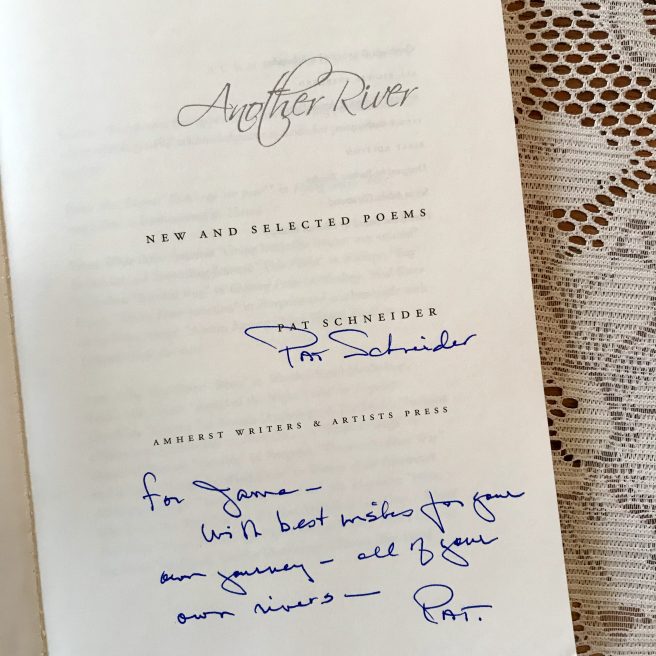 Another River
NEW AND SELECTED POEMS
PAT SCHNEIDER
Pat Schneider
AMHERST WRITERS & ARTISTS PRESS
For Jama –
with best wishes for your
own journey – all of your
own rivers –
PAT.